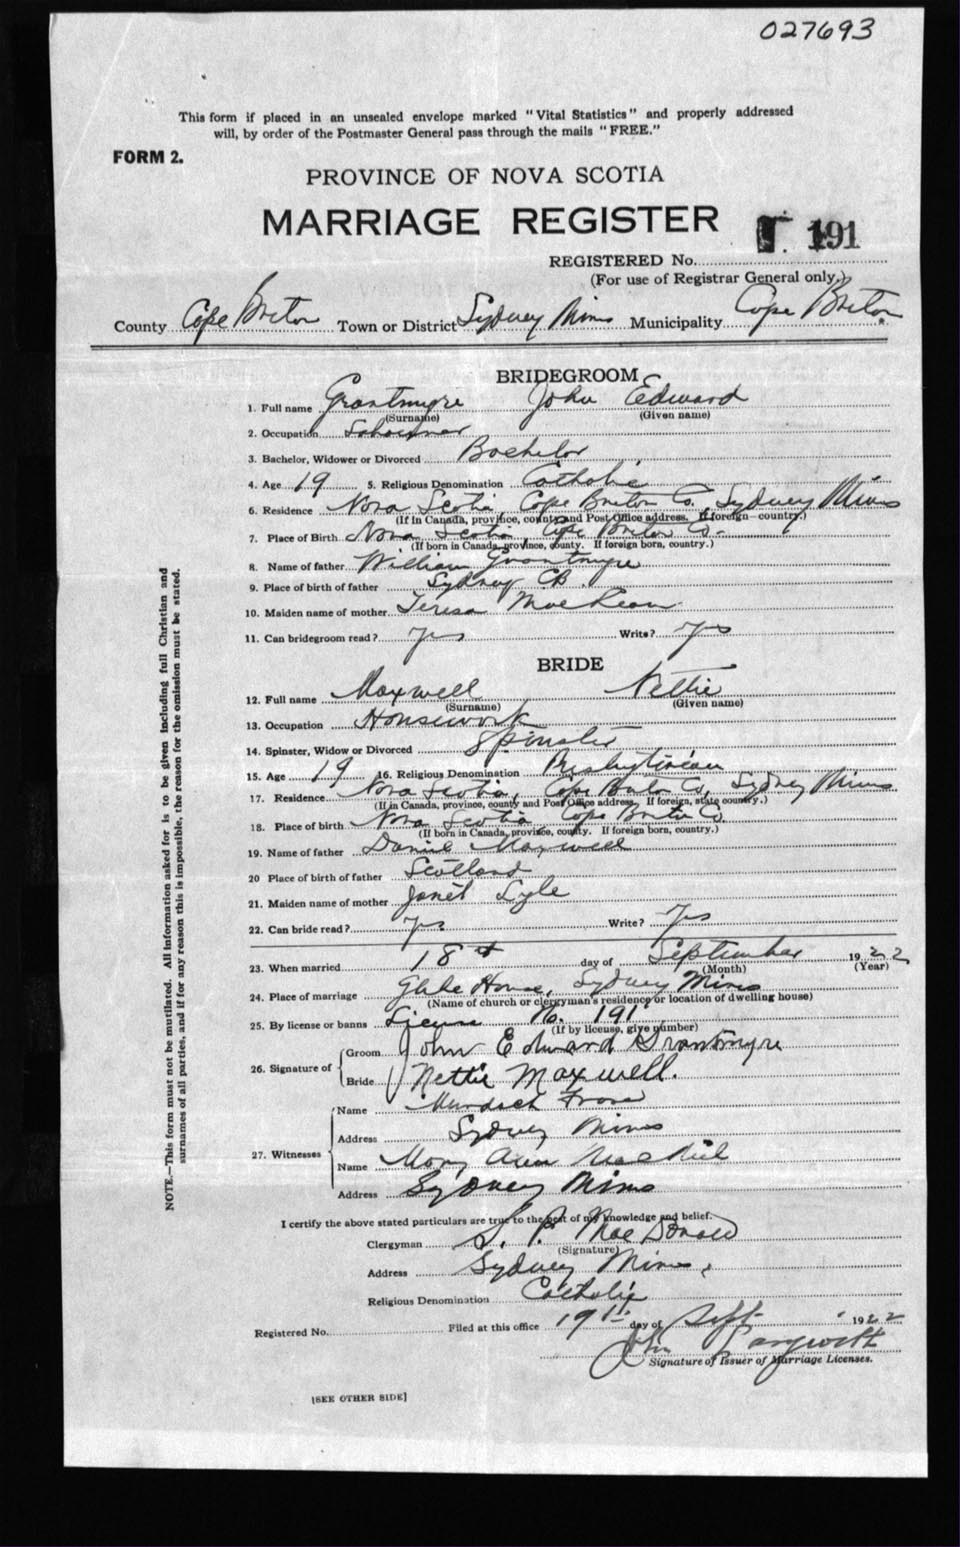 027693
This form if placed in an unsealed envelope marked "Vital Statistics" and properly addressed
will, by order of the Postmaster General pass through the mails "FREE."
FORM 2.
PROVINCE OF NOVA SCOTIA
MARRIAGE REGISTER
191
REGISTERED No.
(For use of Registrar General only.)
County Cape Breton Town or District Sydney Mines Municipality Cape Breton
BRIDEGROOM
1. Full name Grantmyre John Edward
(Surname) (Given name)
2. Occupation
3. Bachelor, Widower or Divorced Bachelor
4. Age 19 5. Religious Denomination Catholic
6. Residence Nova Scotia, Cape Breton Co., Sydney Mines
(If in Canada, province, county and Post Office address. If foreign—country.)
7. Place of Birth Nova Scotia Cape Breton Co.
(If born in Canada, province, county. If foreign born, country.)
8. Name of father William Grantmyre
9. Place of birth of father Sydney CB.
10. Maiden name of mother Teresa MacLean
11. Can bridegroom read? yes Write? yes
BRIDE
12. Full name Maxwell Nettie
(Surname) (Given name)
13. Occupation Housework
14. Spinster, Widow or Divorced Spinster
15. Age 19 16. Religious Denomination Presbyterian
17. Residence Nova Scotia, Cape Breton Co, Sydney Mines
(If in Canada, province, county and Post Office address. If foreign, state country.)
18. Place of birth Nova Scotia Cape Breton Co
(If born in Canada, province, county. If foreign born, country.)
19. Name of father Daniel Maxwell
20 Place of birth of father Scotland
21. Maiden name of mother Janet Lyle
22. Can bride read? yes Write? yes
23. When married 18th day of September 1922
(Month) (Year)
24. Place of marriage Glebe House, Sydney Mines
(Name of church or clergyman's residence or location of dwelling house)
25. By license or banns License No. 191
(If by license, give number)
26. Signature of
Groom John Edward Grantmyre
Bride Nettie Maxwell.
27. Witnesses
Name Murdoch Fraser
Address Sydney Mines
Name Mary Ann MacNeil
Address Sydney Mines
I certify the above stated particulars are true to the best of my knowledge and belief.
Clergyman MacDonald
(Signature)
Address Sydney Mines,
Religious Denomination Catholic
Registered No. Filed at this office 19th day of Sept. 1922
John
Signature of Issuer of Marriage Licenses.
[SEE OTHER SIDE]
NOTE.—This form must not be mutilated. All information asked for is to be given including full Christian and
surnames of all parties, and if for any reason this is impossible, the reason for the omission must be stated.